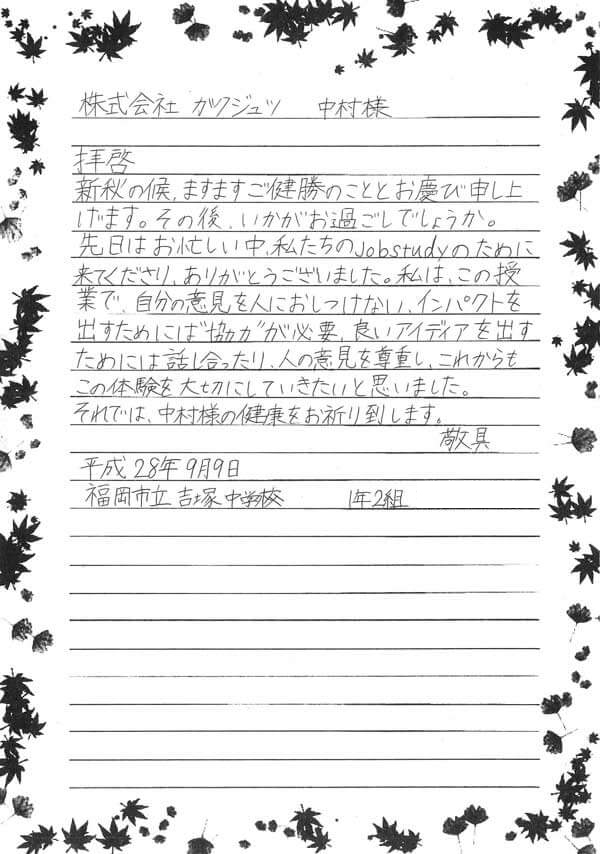 株式会社 ガクジュツ 中村様
拝啓
新秋の候、ますますご健勝のこととお慶び申し上
げます。その後、いかがお過ごしでしょうか。
先日はお忙しい中、私たちのJobstudyのために
来てくださり、ありがとうございました。私は、この授
業で、自分の意見を人におしつけない、インパクトを
出すためには"協力"が必要、良いアイディアを出す
ためには話し合ったり、人の意見を尊重し、これからも
この体験を大切にしていきたいと思いました。
それでは、中村様の健康をお祈り致します。
敬具
平成28年9月9日
福岡市立吉塚中学校 1年2組